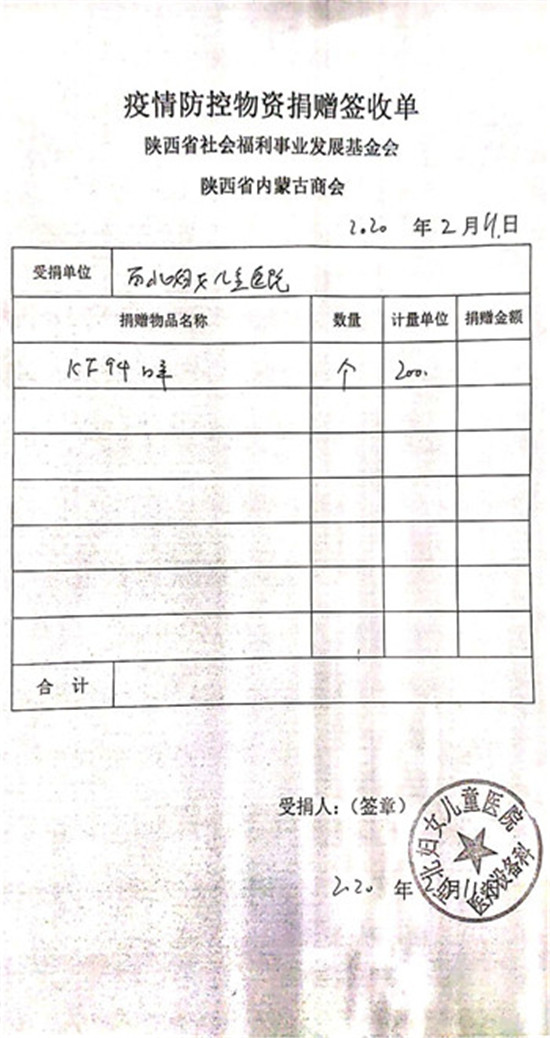 疫情防控物资捐赠签收单
陕西省社会福利事业发展基金会
陕西省内蒙古商会
2020 年 2 月 11 日
受捐单位 西北妇女儿童医院
捐赠物品名称 数量 计量单位 捐赠金额
KF94 口罩 个 200.
合 计
受捐人：（签章）
西北妇女儿童医院
医学设备科
2020 年 2 月 11